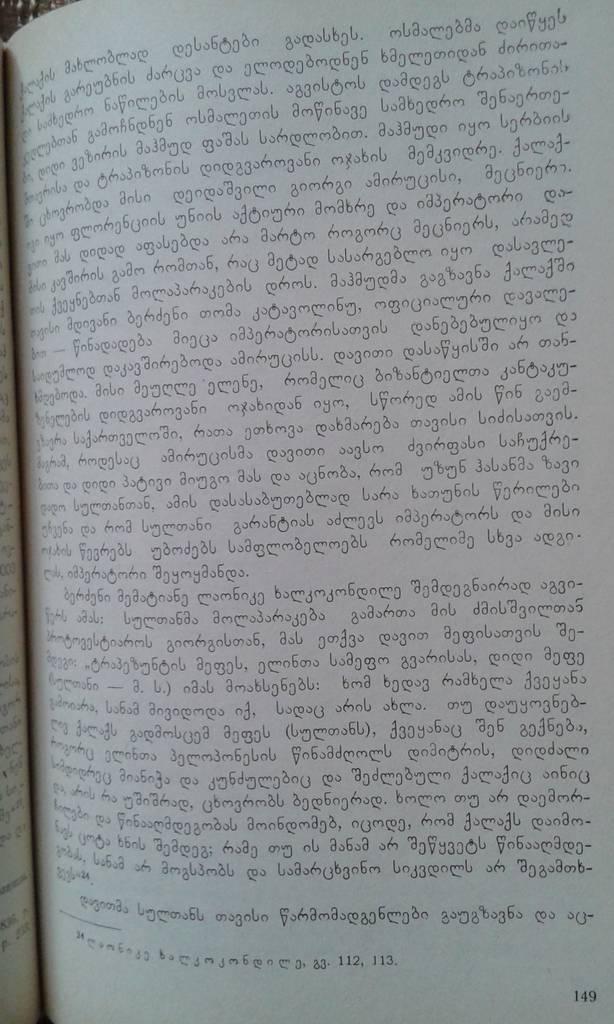 ქალაქის მახლობლად დესანტები გადასხეს. ოსმალებმა დაიწყეს
ქალაქის გარეუბნის ძარცვა და ელოდებოდნენ ხმელეთიდან ძირითა-
და სამხედრო ნაწილების მოსვლას. აგვისტოს დამდეგს ტრაპიზონის
გამოჩნდნენ ოსმალეთის მოწინავე სამხედრო შენაერთე-
ბი, დიდი ვეზირის მაჰმუდ ფაშას სარდლობით. მაჰმუდი იყო სერბიის
და ტრაპიზონის დიდგვაროვანი ოჯახის მემკვიდრე. ქალაქ-
ში ცხოვრობდა მისი დეიდაშვილი გიორგი ამირუცისი, მეცნიერი.
იგი იყო ფლორენციის უნიის აქტიური მომხრე და იმპერატორი და-
ვითი მას დიდად აფასებდა არა მარტო როგორც მეცნიერს, არამედ
მისი კავშირის გამო რომთან, რაც მეტად სასარგებლო იყო დასავლე-
თის ქვეყნებთან მოლაპარაკების დროს. მაჰმუდმა გაგზავნა ქალაქში
თავისი მდივანი ბერძენი თომა კატავოლინუ, ოფიციალური დავალე-
ბით — წინადადება მიეცა იმპერატორისათვის დანებებულიყო და
საიდუმლოდ დაკავშირებოდა ამირუცისს. დავითი დასაწყისში არ თან-
ხმდებოდა. მისი მეუღლე ელენე, რომელიც ბიზანტიელთა კანტაკუ-
ზენელების დიდგვაროვანი ოჯახიდან იყო, სწორედ ამის წინ გაემ-
გზავრა საქართველოში, რათა ეთხოვა დახმარება თავისი სიძისათვის.
მაგრამ, როდესაც ამირუცისმა დავითი აავსო ძვირფასი საჩუქრე-
ბითა და დიდი პატივი მიუგო მას და აცნობა, რომ უზუნ ჰასანმა ზავი
დადო სულთანთან, ამის დასასაბუთებლად სარა ხათუნის წერილები
უჩვენა და რომ სულთანი გარანტიას აძლევს იმპერატორს და მისი
ოჯახის წევრებს უბოძებს სამფლობელოებს რომელიმე სხვა ადგი-
ლას, იმპერატორი შეყოყმანდა.
ბერძენი მემატიანე ლაონიკე ხალკოკონდილე შემდეგნაირად აგვი-
წერს ამას: სულთანმა მოლაპარაკება გამართა მის ძმისშვილთან
პროტოვესტიაროს გიორგისთან, მას ეთქვა დავით მეფისათვის შე-
მდეგი: „ტრაპეზუნტის მეფეს, ელინთა სამეფო გვარისას, დიდი მეფე
(სულთანი — მ. ს.) იმას მოახსენებს: ხომ ხედავ რამხელა ქვეყანა
გამოიარა, სანამ მივიდოდა იქ, სადაც არის ახლა. თუ დაუყოვნებ-
ლივ ქალაქს გადმოსცემ მეფეს (სულთანს), ქვეყანაც შენ გექნება,
როგორც ელინთა პელოპონესის წინამძღოლს დიმიტრის, დიდძალი
სიმდიდრეც მიანიჭა და კუნძულებიც და შეძლებული ქალაქიც აინიც
და, არის რა უშიშრად, ცხოვრობს ბედნიერად. ხოლო თუ არ დაემორ-
ჩილები და წინააღმდეგობას მოინდომებ, იცოდე, რომ ქალაქს დაიმო-
ნავს ცოტა ხნის შემდეგ; რამე თუ ის მანამ არ შეწყვეტს წინააღმდე-
გობას, სანამ არ მოგსპობს და სამარცხვინო სიკვდილს არ შეგამთხ-
ვევს“²⁴.
დავითმა სულთანს თავისი წარმომადგენლები გაუგზავნა და აც-
²⁴ ლაონიკე ხალკოკონდილე, გვ. 112, 113.
149